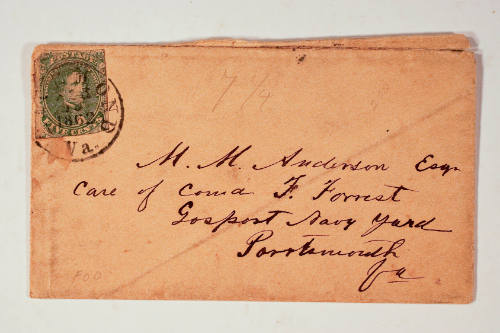 1862
Va.
7 1/4
M. M. Anderson Esqr
Care of Comd F. Forrest
Gosport Navy Yard
Porrtsmouth
Va